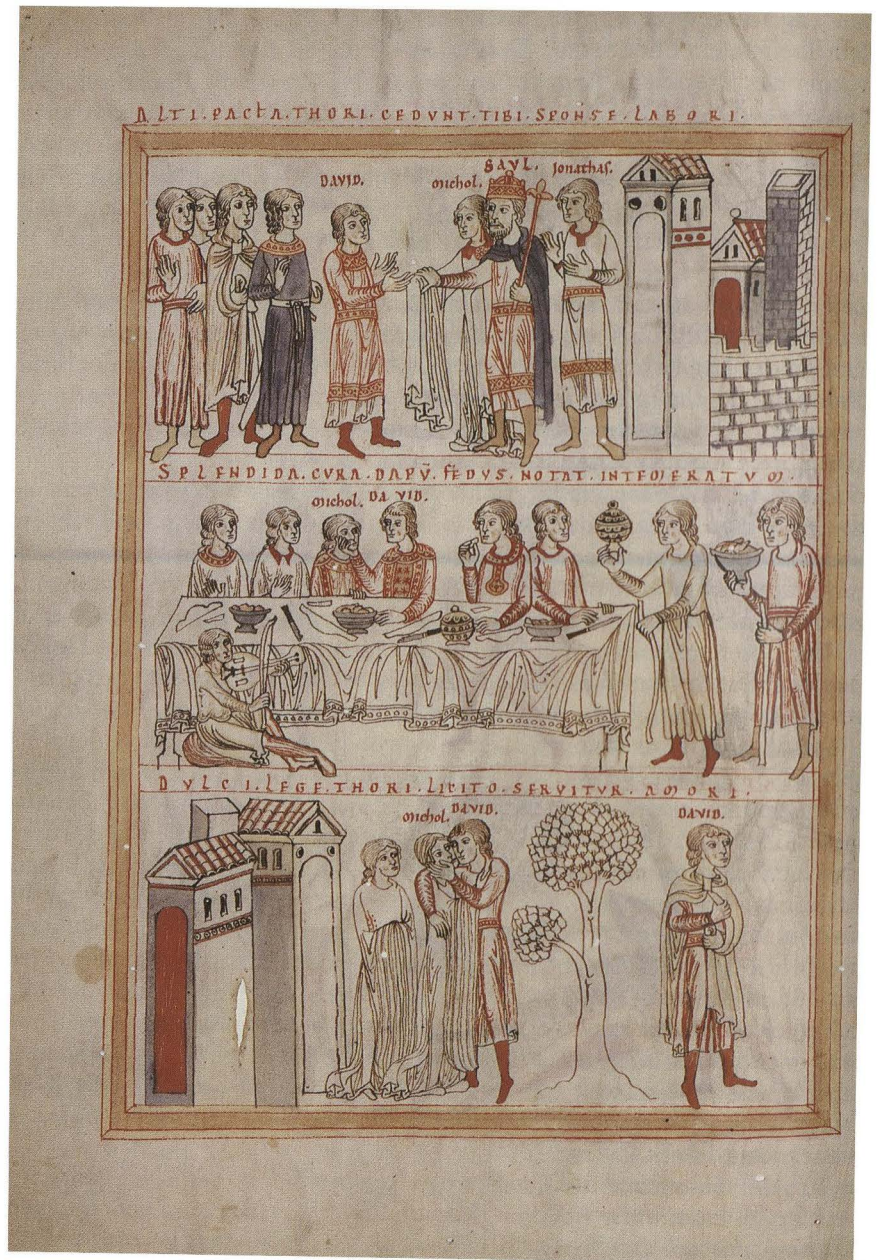 ALTI . PACTA . THORI . CEDVNT . TIBI . SPONSE . LABORI .
SAVL. Jonathas.
DAVID. michol.
SPLENDIDA . CVRA . DAPŪ . FĒDVS . NOTAT . INTEMERATVM .
michol. DAVID.
DVLCI . LEGE . THORI . LICITO . SERVITVR . AMORI .
michol. DAVID. DAVID.